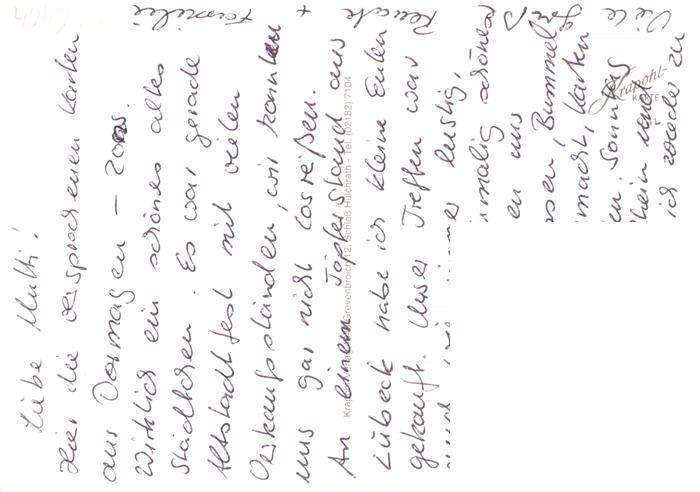 Liebe Mutti!
Hier die versprochenen Karten
aus Dormagen - Zons.
Wirklich ein schönes altes
Städtchen. Es war gerade
Altstadtfest mit vielen
Verkaufsständen, wir konnten
uns gar nicht losreißen.
An einem Töpferstand aus
Lübeck habe ich kleine Eulen
gekauft. Unser Treffen war
lustig,
malig schönes
en uns
sen, Bummel
macht, Karten
en. Sonntags
ich wieder zu
Viele
Renate + Familie
Krapohl-
KARTE
Grevenbroich 12, Schloß Hülchrath · Tel. (02182) 7104